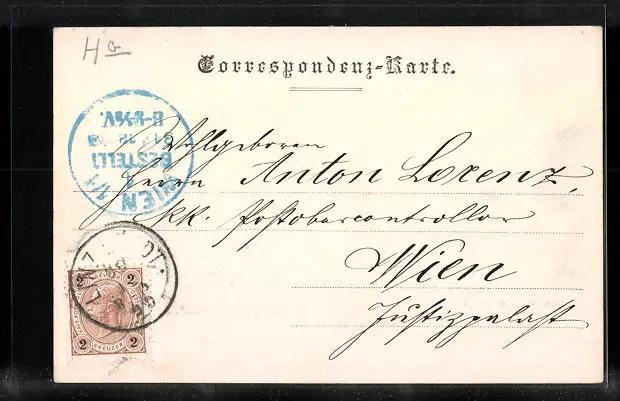 Ha
Correspondenz-Karte.
WIEN 1/1
BESTELLT
8-9½V.
Wohlgeboren
Herrn Anton Lorenz,
kk. Postobercontrollor
Wien
Justizpalast
LINZ
2 2
2 KREUZER 2